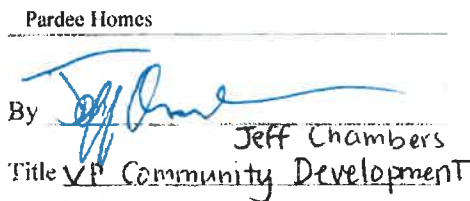 Pardee Homes
By
Jeff Chambers
Title VP Community Development